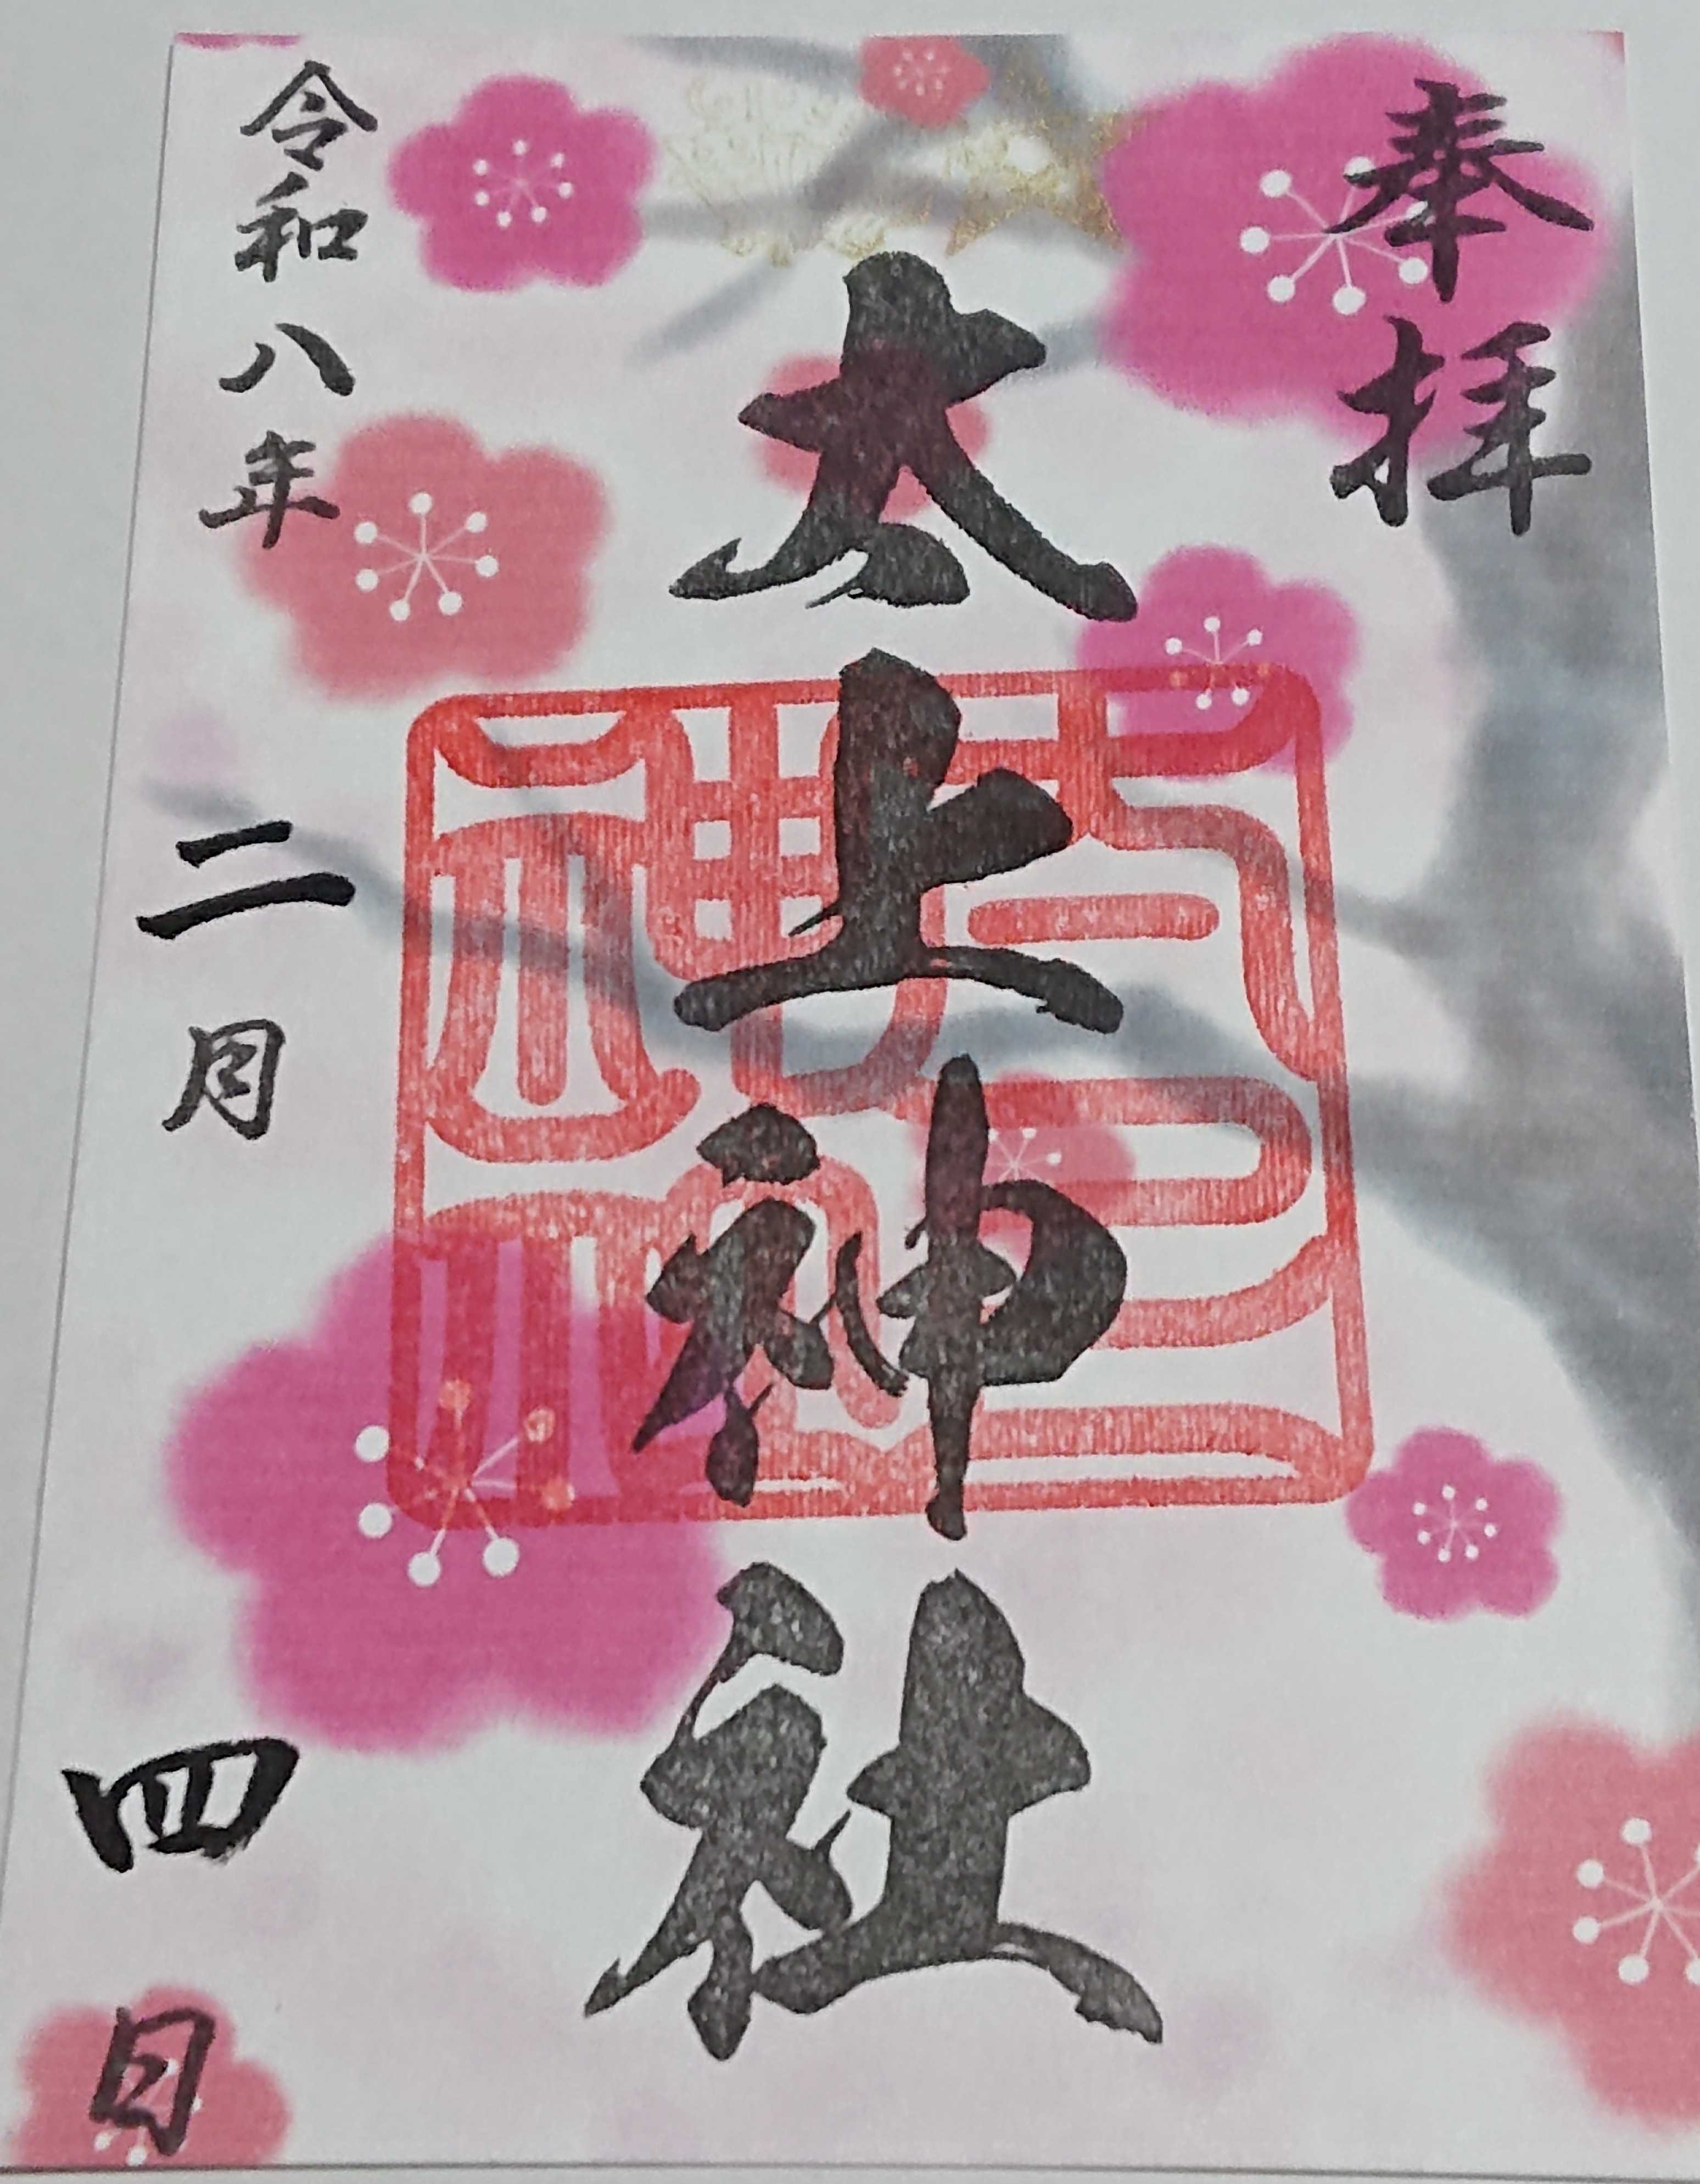 奉拝
太上神社
令和八年 二月 四日